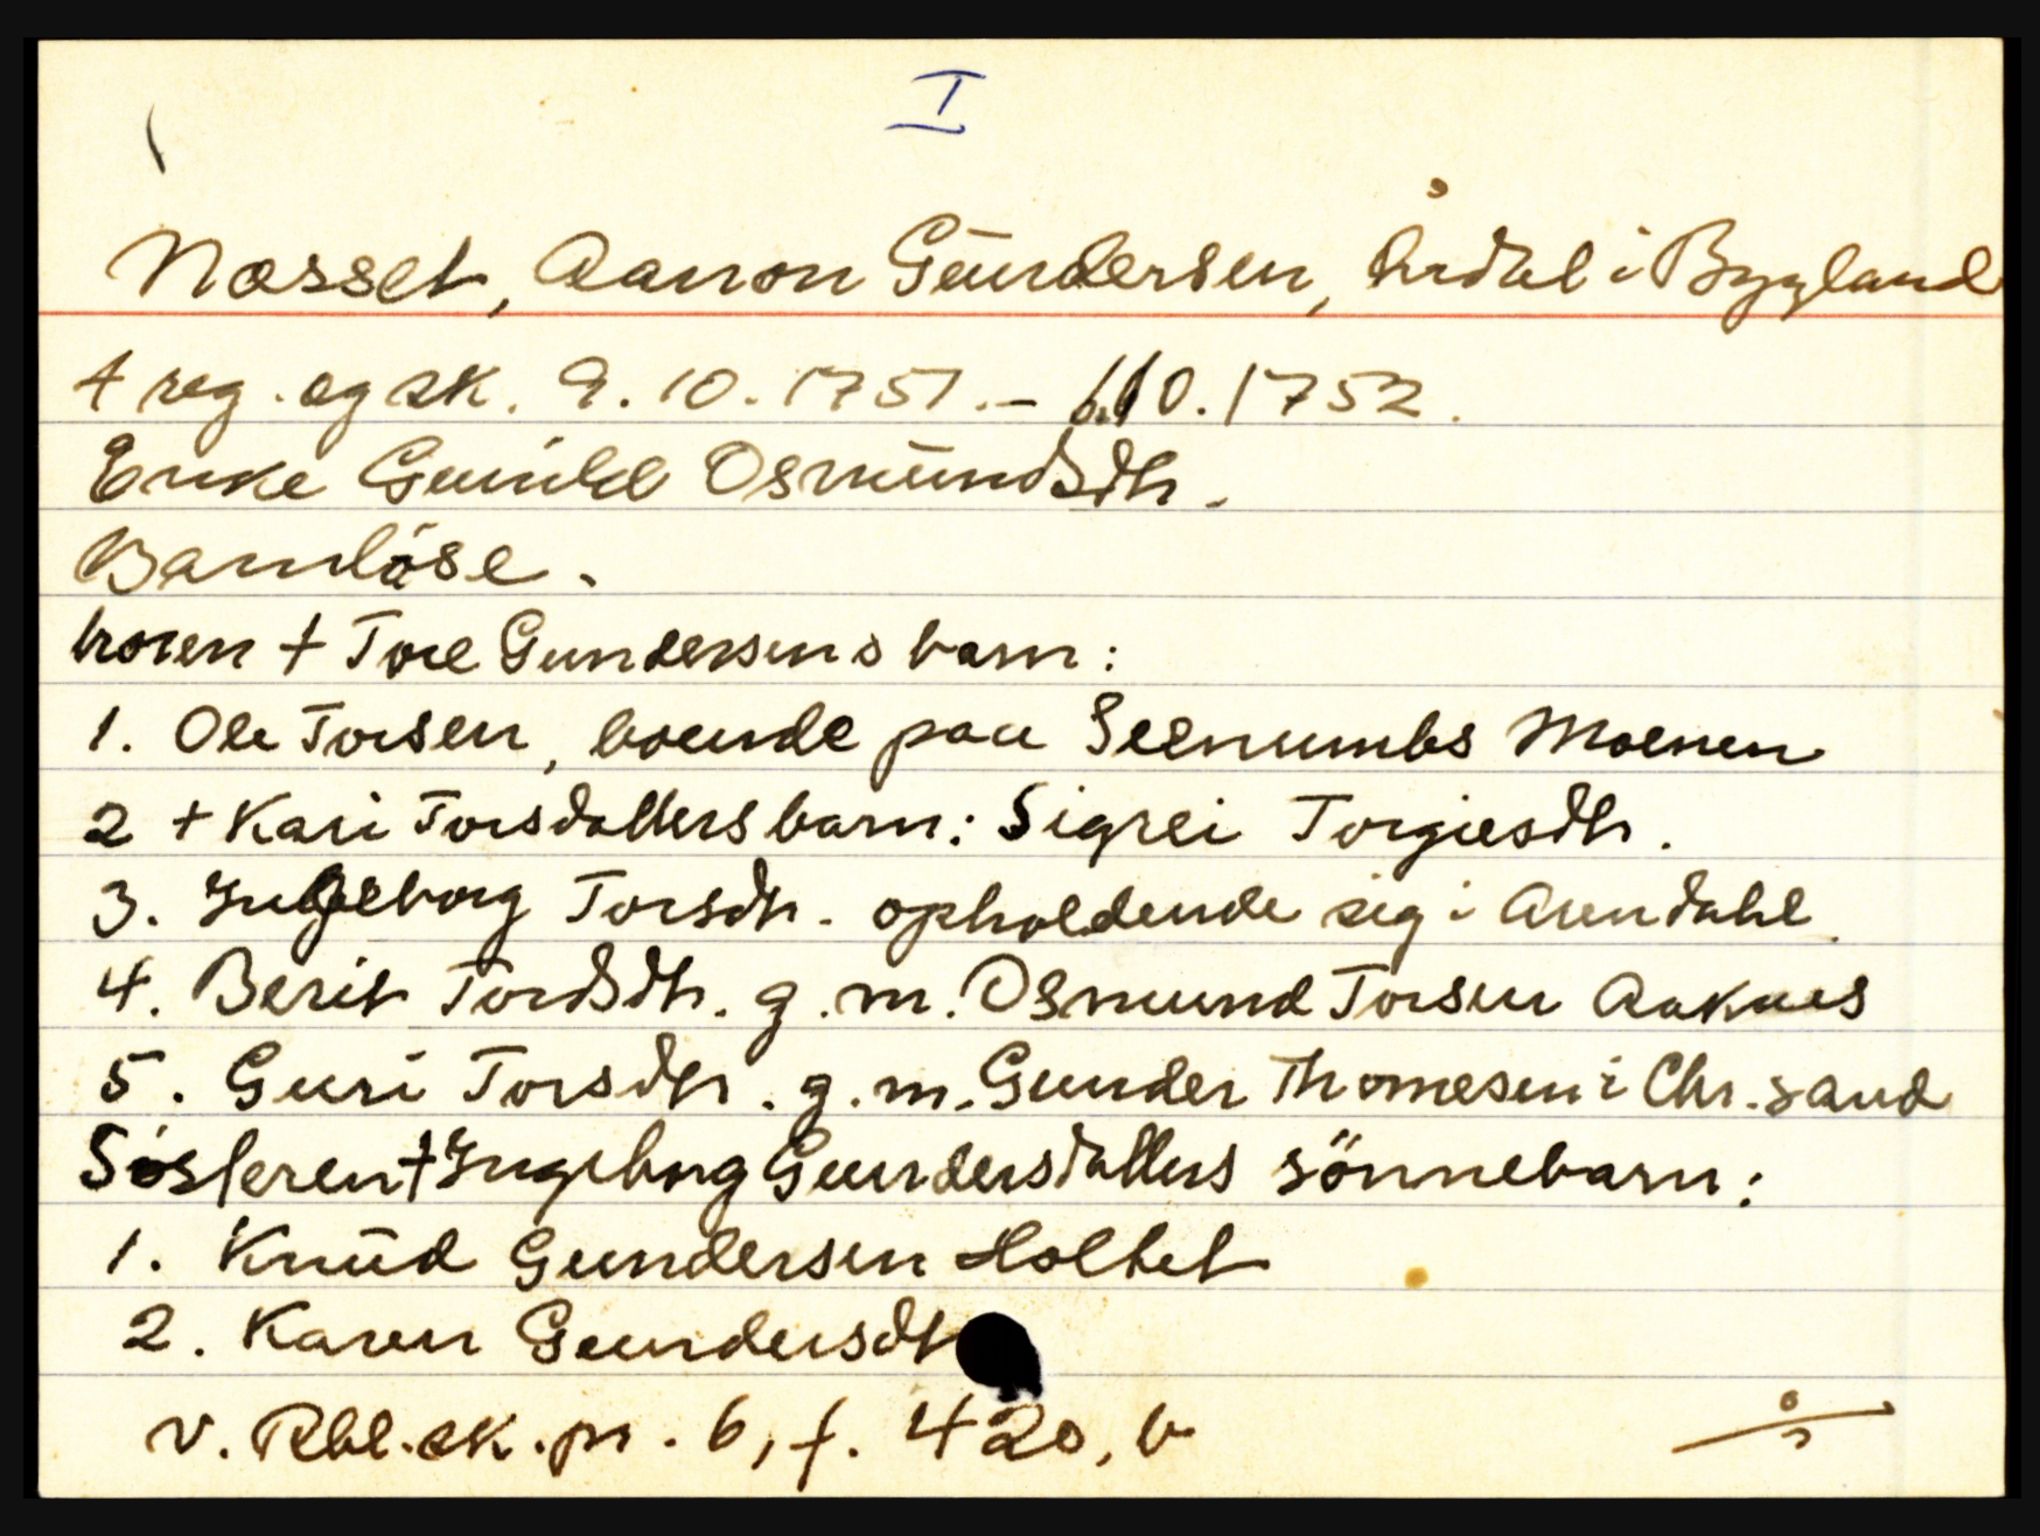 I
Næsset, Aanon Gundersen, Årdal i Bygland
† reg. og sk. 9.10.1751.- 10.1752.
Enke Gunild Osmundsdtr.
Barnløse.
broren † Tore Gundersens barn:
1. Ole Torsen, boende paa Seenumbs Moenen
2 † Kari Torsdatters barn: Sigrei Torgiesdtr.
3. Ingeborg Torsdtr. opholdende sig i Arendahl.
4. Berit Tordsdtr. g. m. Osmund Torsen Aaknes
5. Guri Torsdtr. g. m. Gunder Thomesen i Chr.sand
Søsteren † Ingeborg Gundersdatters sönnebarn:
1. Knud Gundersen Holtet
2. Karen Gundersdtr
v. Rbl. sk. pr. 6, f. 420, b